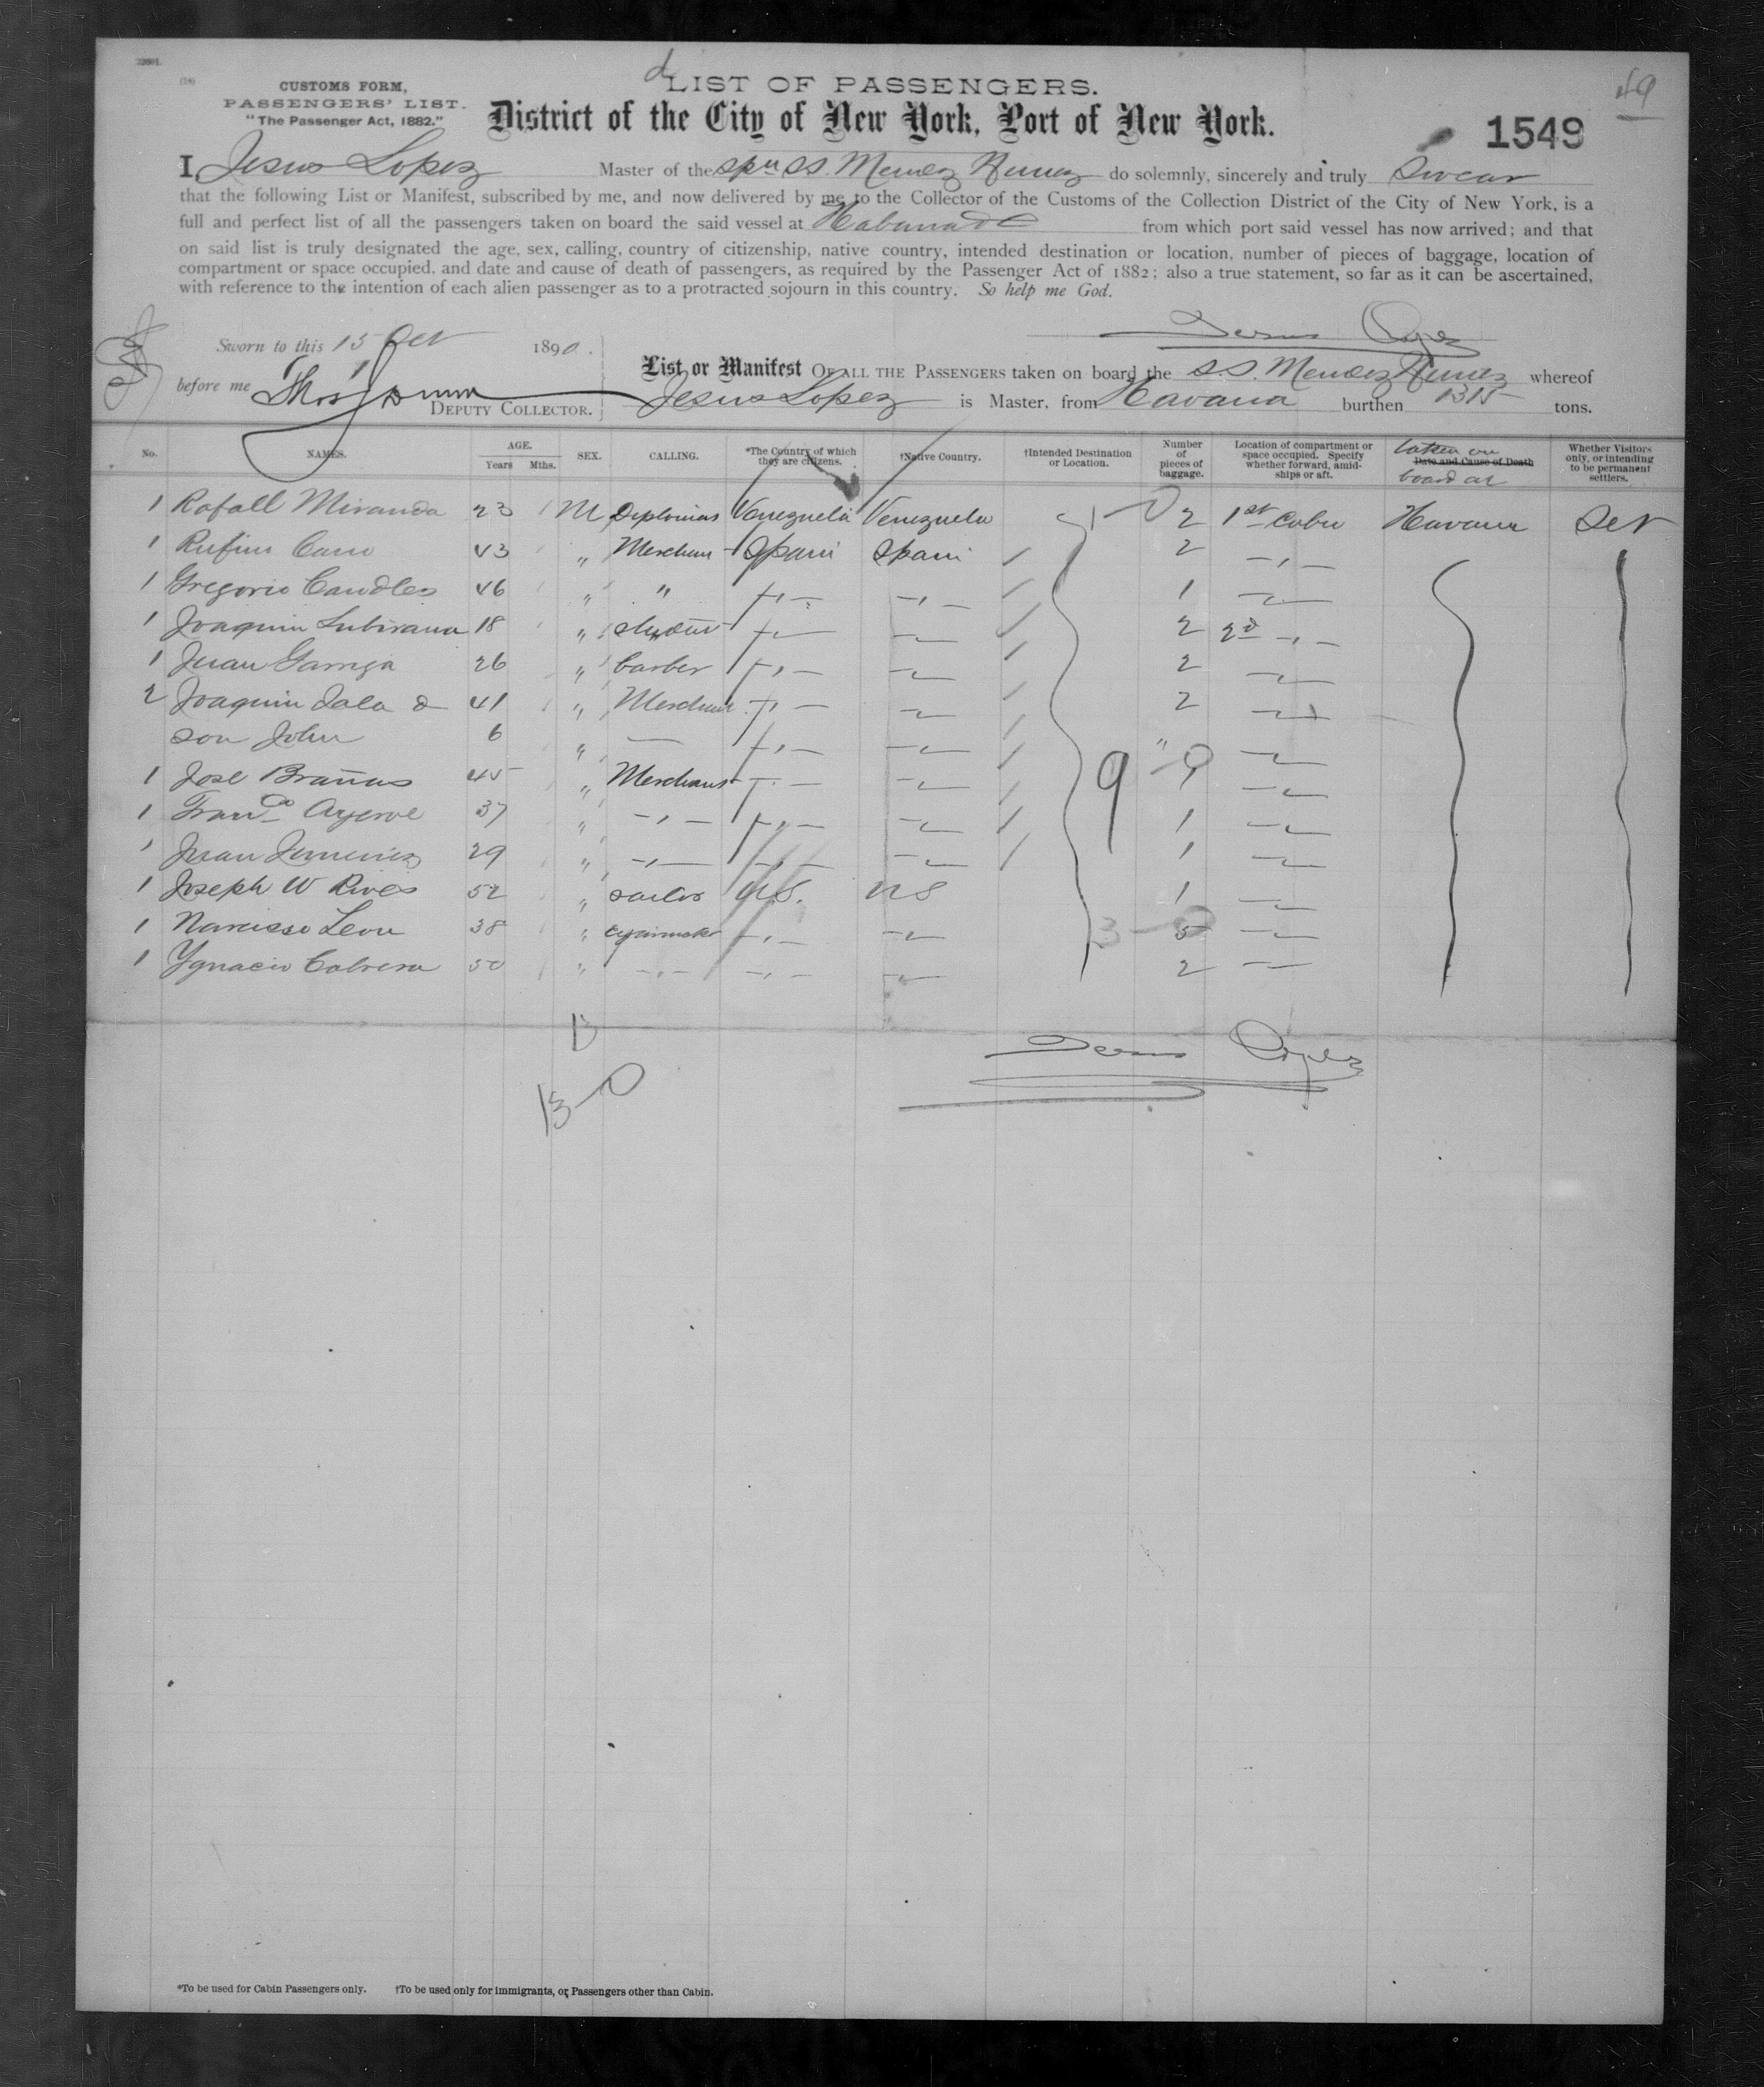 22601.
49
(14)
CUSTOMS FORM,
PASSENGERS' LIST.
"The Passenger Act, 1882."
LIST OF PASSENGERS.
District of the City of New York, Port of New York.
1549
I, Jesus Lopez Master of the Spn SS. Mendez Nunez do solemnly, sincerely and truly Swear
that the following List or Manifest, subscribed by me, and now delivered by me to the Collector of the Customs of the Collection District of the City of New York, is a
full and perfect list of all the passengers taken on board the said vessel at Habana from which port said vessel has now arrived; and that
on said list is truly designated the age, sex, calling, country of citizenship, native country, intended destination or location, number of pieces of baggage, location of
compartment or space occupied, and date and cause of death of passengers, as required by the Passenger Act of 1882; also a true statement, so far as it can be ascertained,
with reference to the intention of each alien passenger as to a protracted sojourn in this country. So help me God.
Jesus Lopez
Sworn to this 15 Oct 1890.
before me Thos Dunn
DEPUTY COLLECTOR.
List or Manifest OF ALL THE PASSENGERS taken on board the S.S. Mendez Nunez whereof
Jesus Lopez is Master, from Havana burthen 1315 tons.
No. NAMES. AGE. Years Mths. SEX. CALLING. *The Country of which they are citizens. †Native Country. †Intended Destination or Location. Number of pieces of baggage. Location of compartment or space occupied. Specify whether forward, amidships or aft. Date and Cause of Death taken on board at Whether Visitors only, or intending to be permanent settlers.
1 Rafall Miranda 23 M Diplomas Venezuela Venezuela 1-0 2 1st Cabn Havana Set
1 Rufino Cano 43 " Merchan Spain Spain 2 -,-
1 Gregorio Candles 46 " " -,- -,- 1 -,-
1 Joaquin Lubirana 18 " student -,- -,- 2 2d -,-
1 Juan Garriga 26 " barber -,- -,- 2 -,-
2 Joaquin Sala & 41 " Merchant -,- -,- 2 -,-
son John 6 " — -,- -,- " -,-
1 Jose Brañas 45 " Merchant -,- -,- 9-0 1 -,-
1 Franco Ayerve 37 " -,- -,- -,- 1 -,-
1 Juan Jimenez 29 " -,- -,- -,- 1 -,-
1 Joseph W Rives 52 " sailor U.S. US 1 -,-
1 Narcisso Leon 38 " cigarmaker -,- -,- 3-0 5 -,-
1 Ygnacio Cabrera 50 " -,- -,- -,- 2 -,-
13
13-0
Jesus Lopez
*To be used for Cabin Passengers only. †To be used only for immigrants, or Passengers other than Cabin.